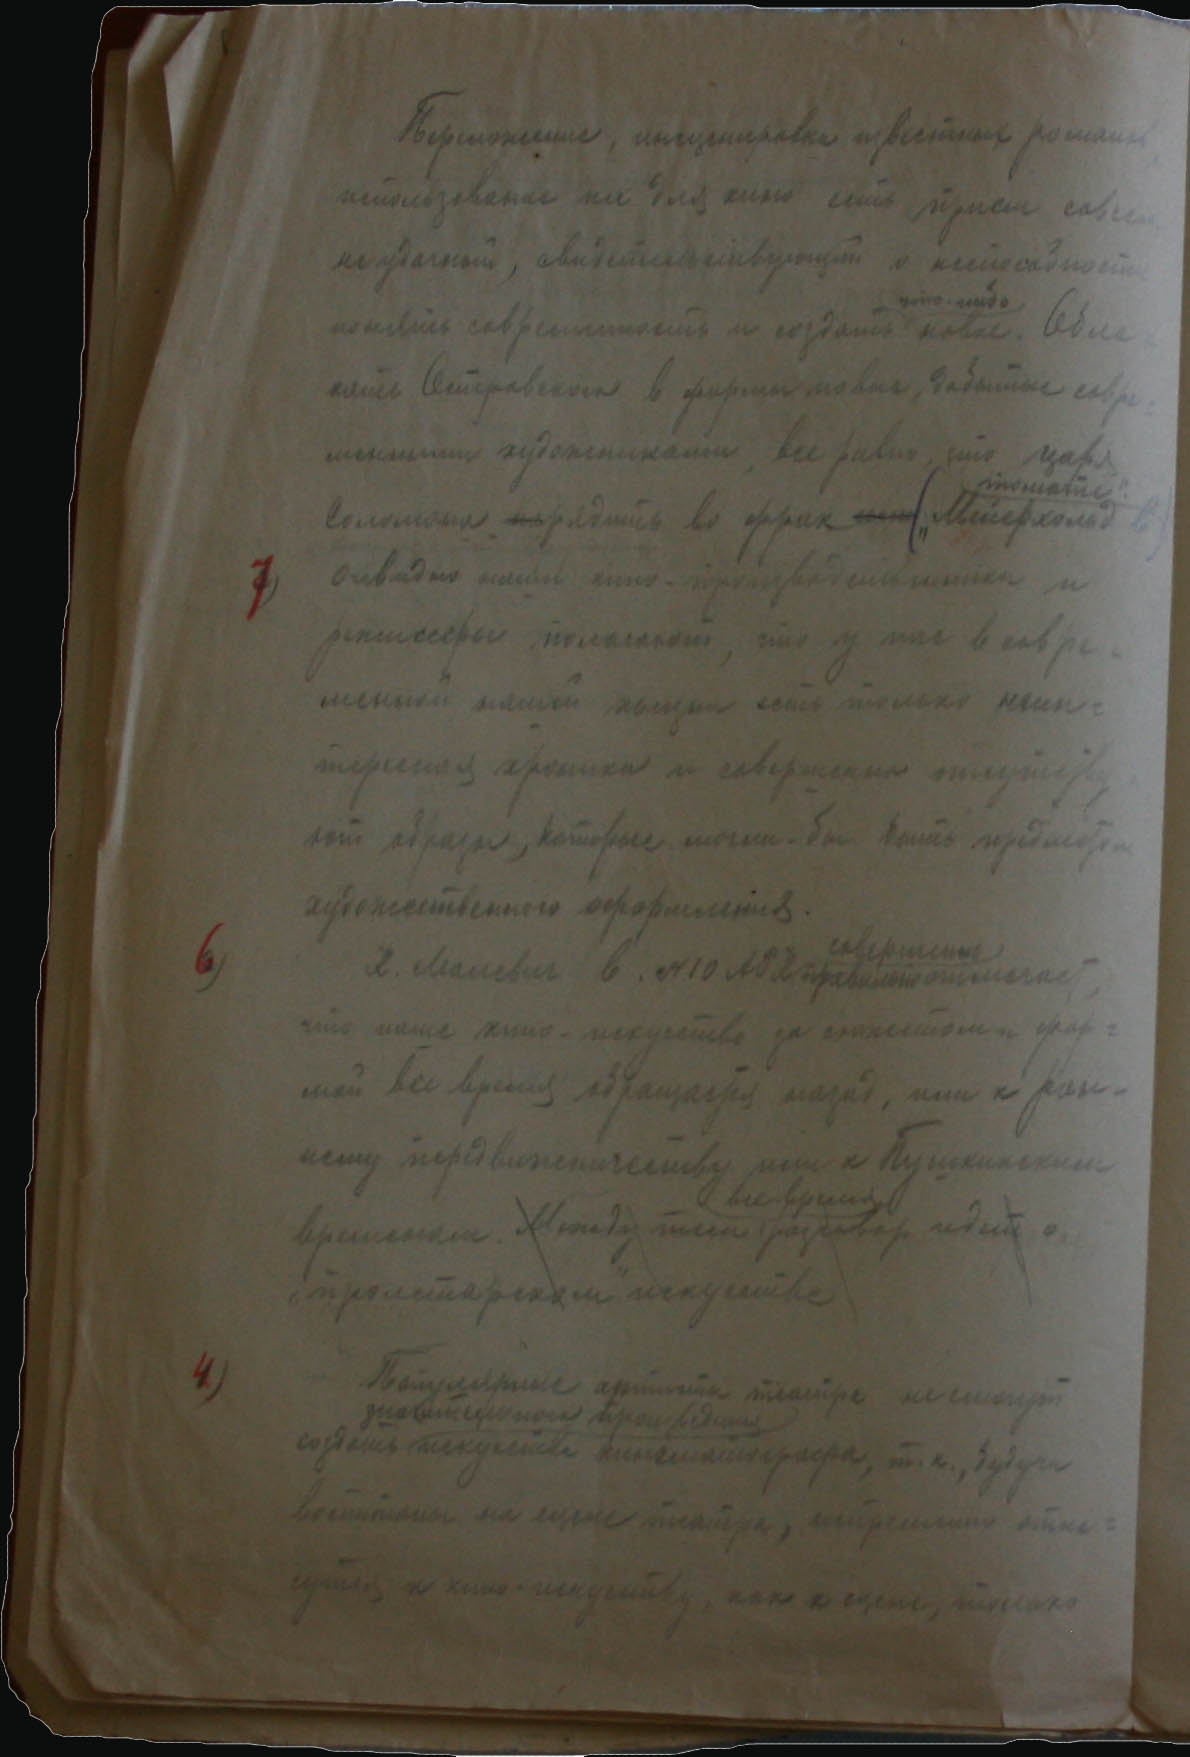 Переложение, инсценировка известных романов,
использование их для кино есть прием совсем
неудачный, свидетельствующий о неспособности
что-либо
понять современность и создать новое. Обле-
кать Островского в формы новые, добытые совре=
менными художниками, все равно, что царя
томате".
Соломона рядить во фрак ("Мейерхольд в)
7) Очевидно наши кино-производственники и
режиссеры полагают, что у нас в совре-
менной нашей жизни есть только неин=
тересная хроника и совершенно отсутству-
ют образы, которые могли-бы быть предметом
художественного оформления.
совершенно
6) К. Малевич в №10 АРК правильно отмечает,
что наше кино-искусство за сюжетом и фор=
мой все время обращается назад, или к ран-
нему передвижничеству или к Пушкинским
все время
временам. Между тем разговор идет о
"пролетарском" искусстве
4) Популярные артисты театра не смогут
произведения
создать искусства кинематографа, т.к., будучи
воспитаны на сцене театра, непременно отне=
сутся к кино-искусству, как к сцене, только